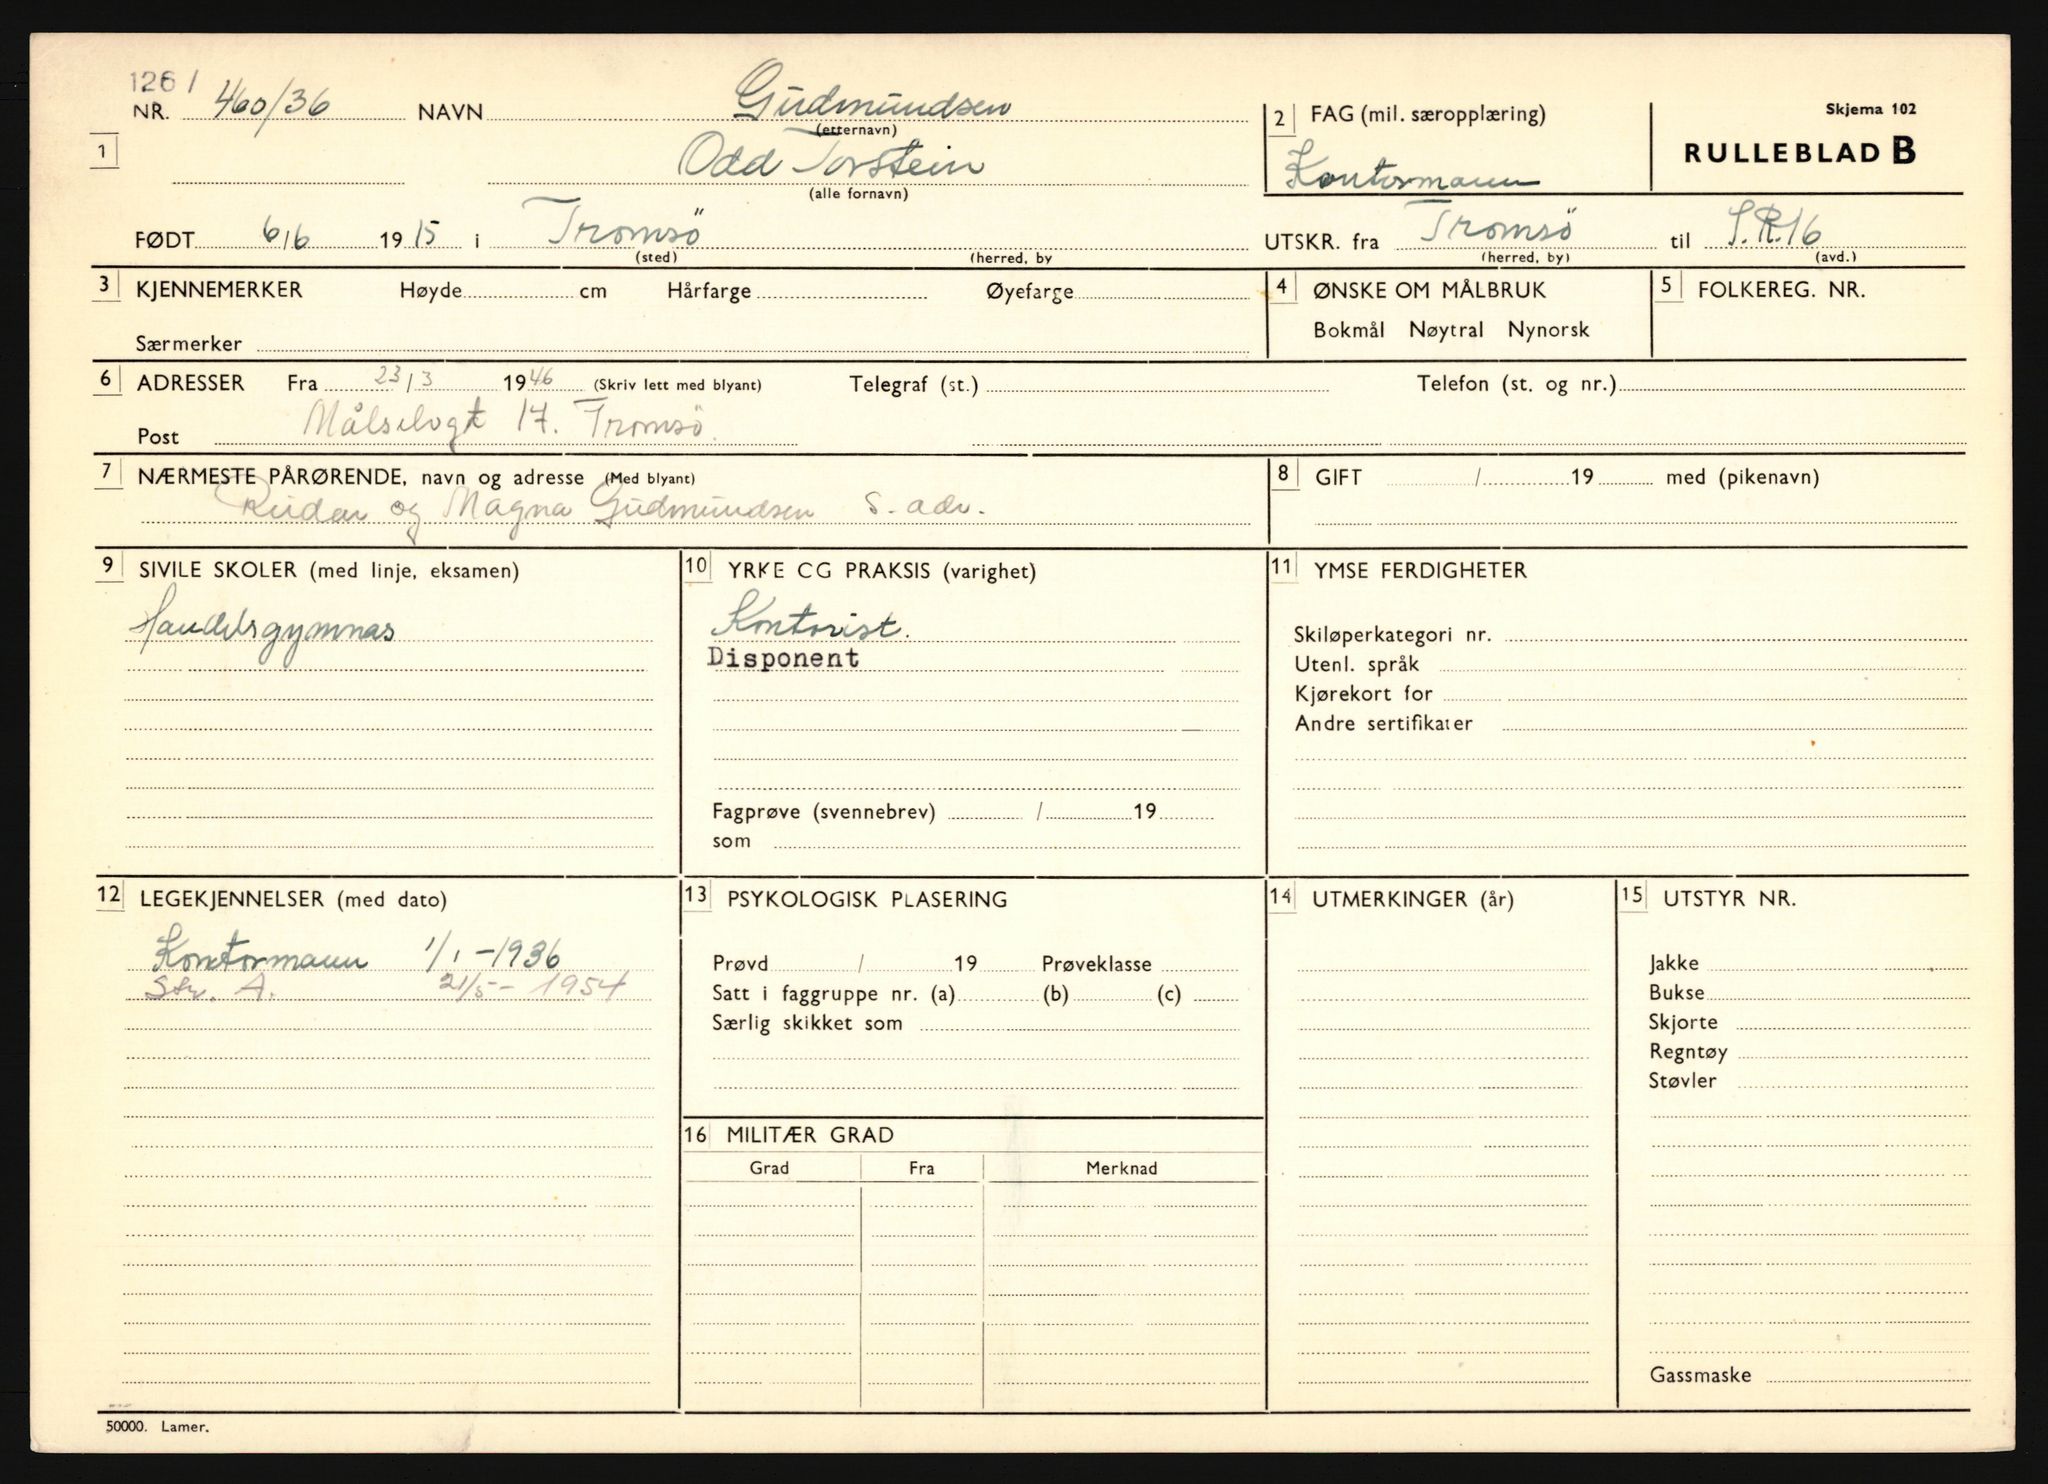 1261
NR. 460/36 NAVN Gudmundsen
(etternavn)
1
Odd Torstein
(alle fornavn)
2 FAG (mil. særopplæring)
Kontormann
Skjema 102
RULLEBLAD B
FØDT 6/6 1915 i Tromsö
(sted) (herred, by
UTSKR. fra Tromsö til I.R.16
(herred, by) (avd.)
3 KJENNEMERKER Høyde cm Hårfarge Øyefarge
Særmerker
4 ØNSKE OM MÅLBRUK
Bokmål Nøytral Nynorsk
5 FOLKEREG. NR.
6 ADRESSER Fra 23/3 1946 (Skriv lett med blyant) Telegraf (st.) Telefon (st. og nr.)
Post Målselvgt 17. Tromsö.
7 NÆRMESTE PÅRØRENDE, navn og adresse (Med blyant)
og Magna Gudmundsen s. adr.
8 GIFT / 19 med (pikenavn)
9 SIVILE SKOLER (med linje, eksamen)
Handelsgymnas
10 YRKE CG PRAKSIS (varighet)
Kontorist.
Disponent
Fagprøve (svennebrev) / 19
som
11 YMSE FERDIGHETER
Skiløperkategori nr.
Utenl. språk
Kjørekort for
Andre sertifikater
12 LEGEKJENNELSER (med dato)
Kontormann 1/1 - 1936
Str. A. 21/5 - 1954
13 PSYKOLOGISK PLASERING
Prøvd / 19 Prøveklasse
Satt i faggruppe nr. (a) (b) (c)
Særlig skikket som
14 UTMERKINGER (år)
15 UTSTYR NR.
Jakke
Bukse
Skjorte
Regntøy
Støvler
Gassmaske
16 MILITÆR GRAD
Grad Fra Merknad
50000. Lamer.